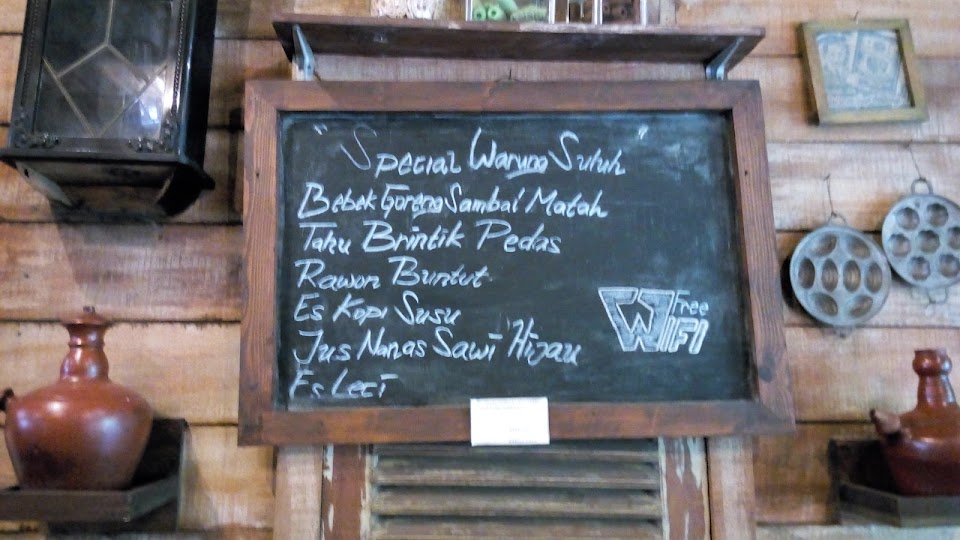 "Special Warung Suluh"
Bebek Goreng Sambal Matah
Tahu Brintik Pedas
Rawon Buntut
Es Kopi Susu
Jus Nanas Sawi Hijau
Es Leci
Free
WIFI